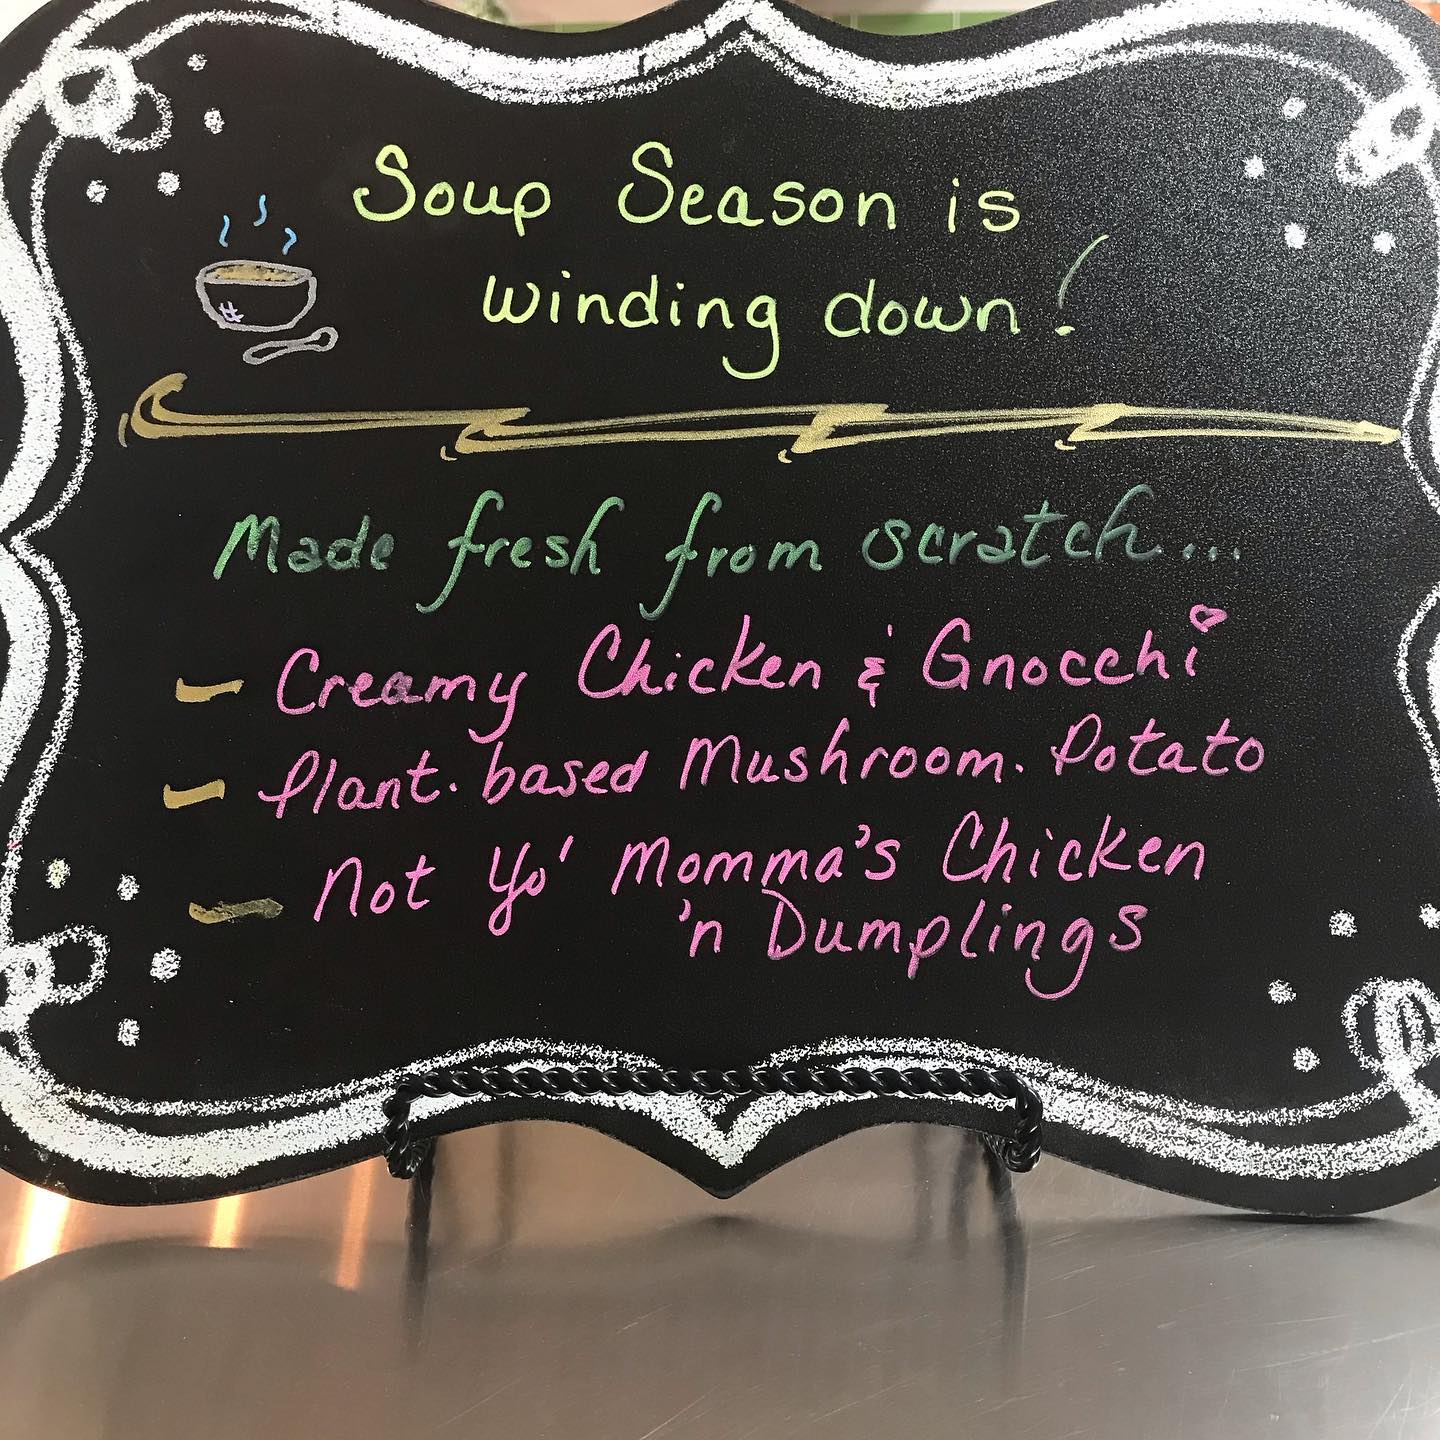 Soup Season is
winding down!
Made fresh from scratch...
- Creamy Chicken & Gnocchi
- Plant-based Mushroom-Potato
- Not Yo' Momma's Chicken
'n Dumplings